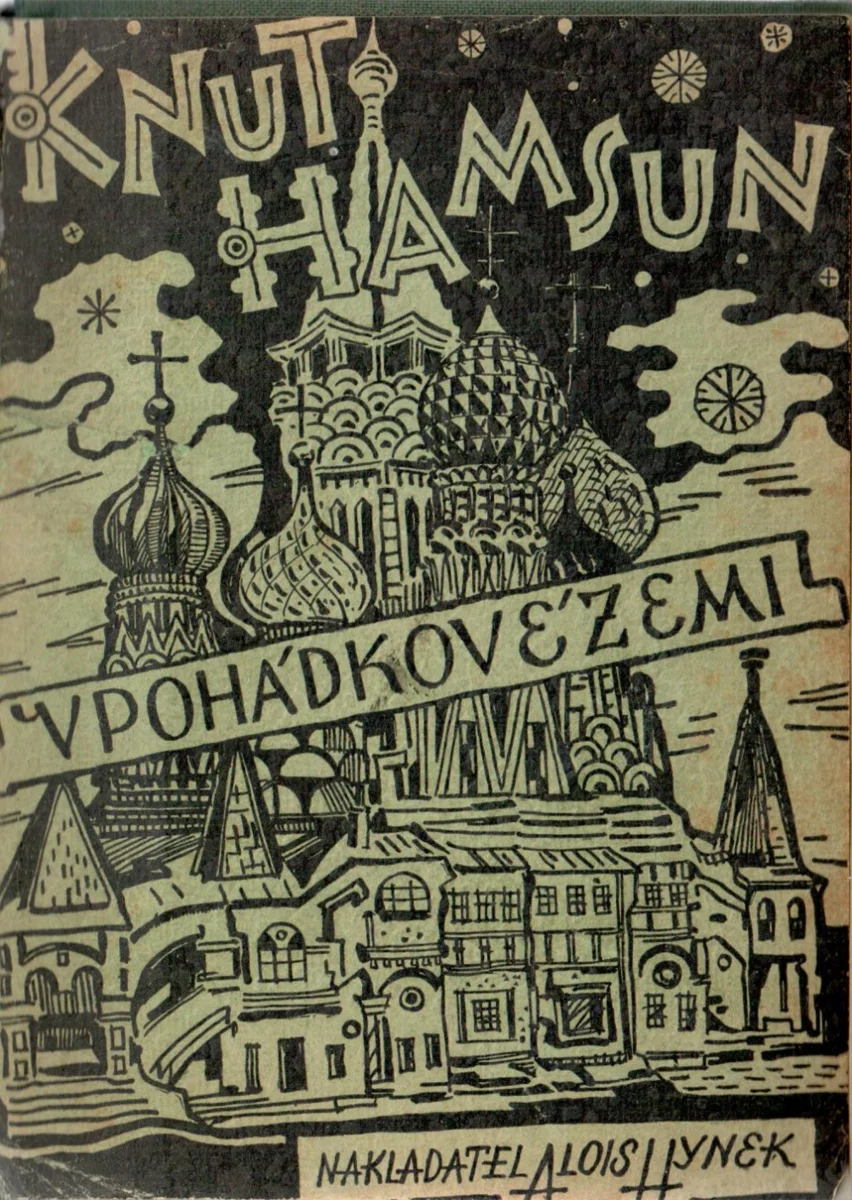 KNUT
HAMSUN
V POHÁDKOVÉ ZEMI
NAKLADATEL ALOIS HYNEK